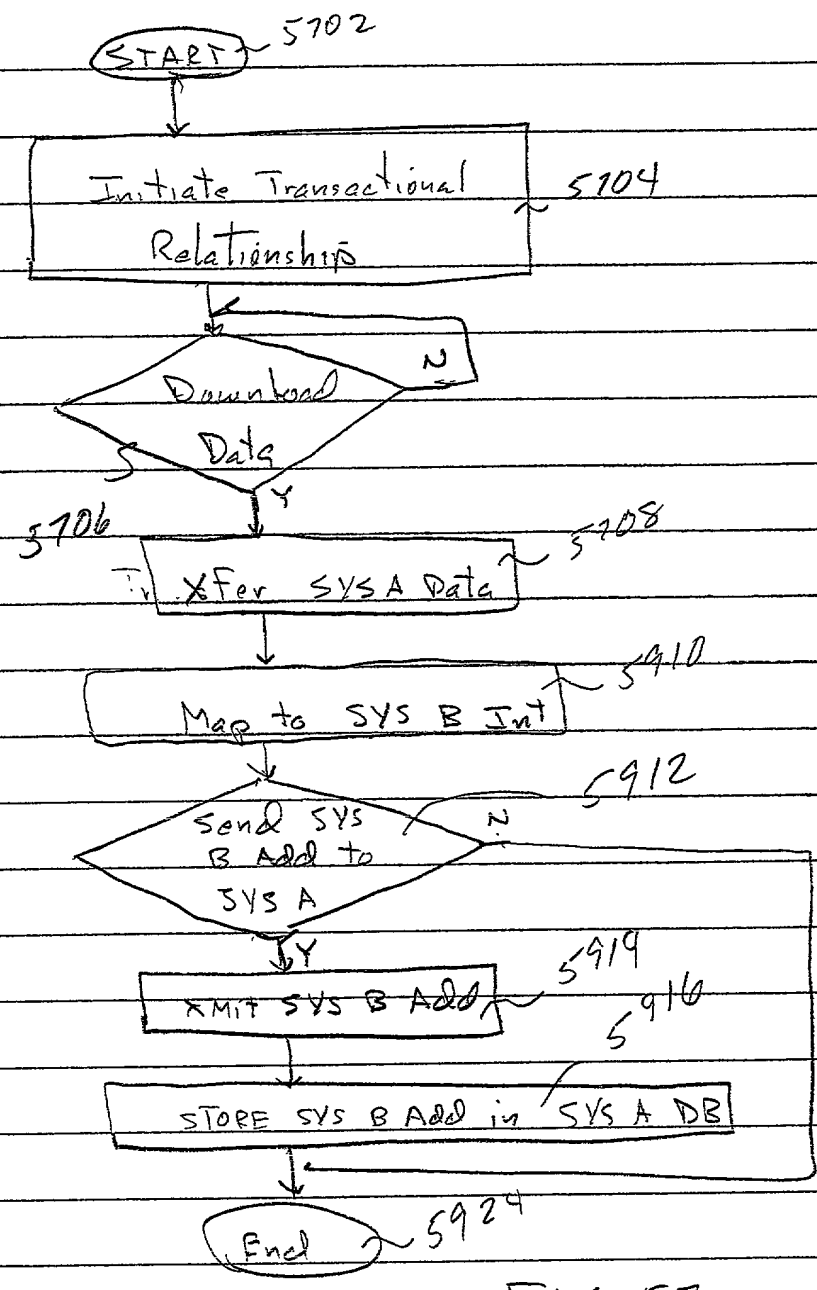 START 5702
Initiate Transactional 5704
Relationship
N
Download
Data
Y
5706 5708
Xfer SYS A Data
5910
Map to SYS B Int
5912
Send SYS N
B Add to
SYS A
Y
5914
XMIT SYS B Add
5916
STORE SYS B Add in SYS A DB
End 5924